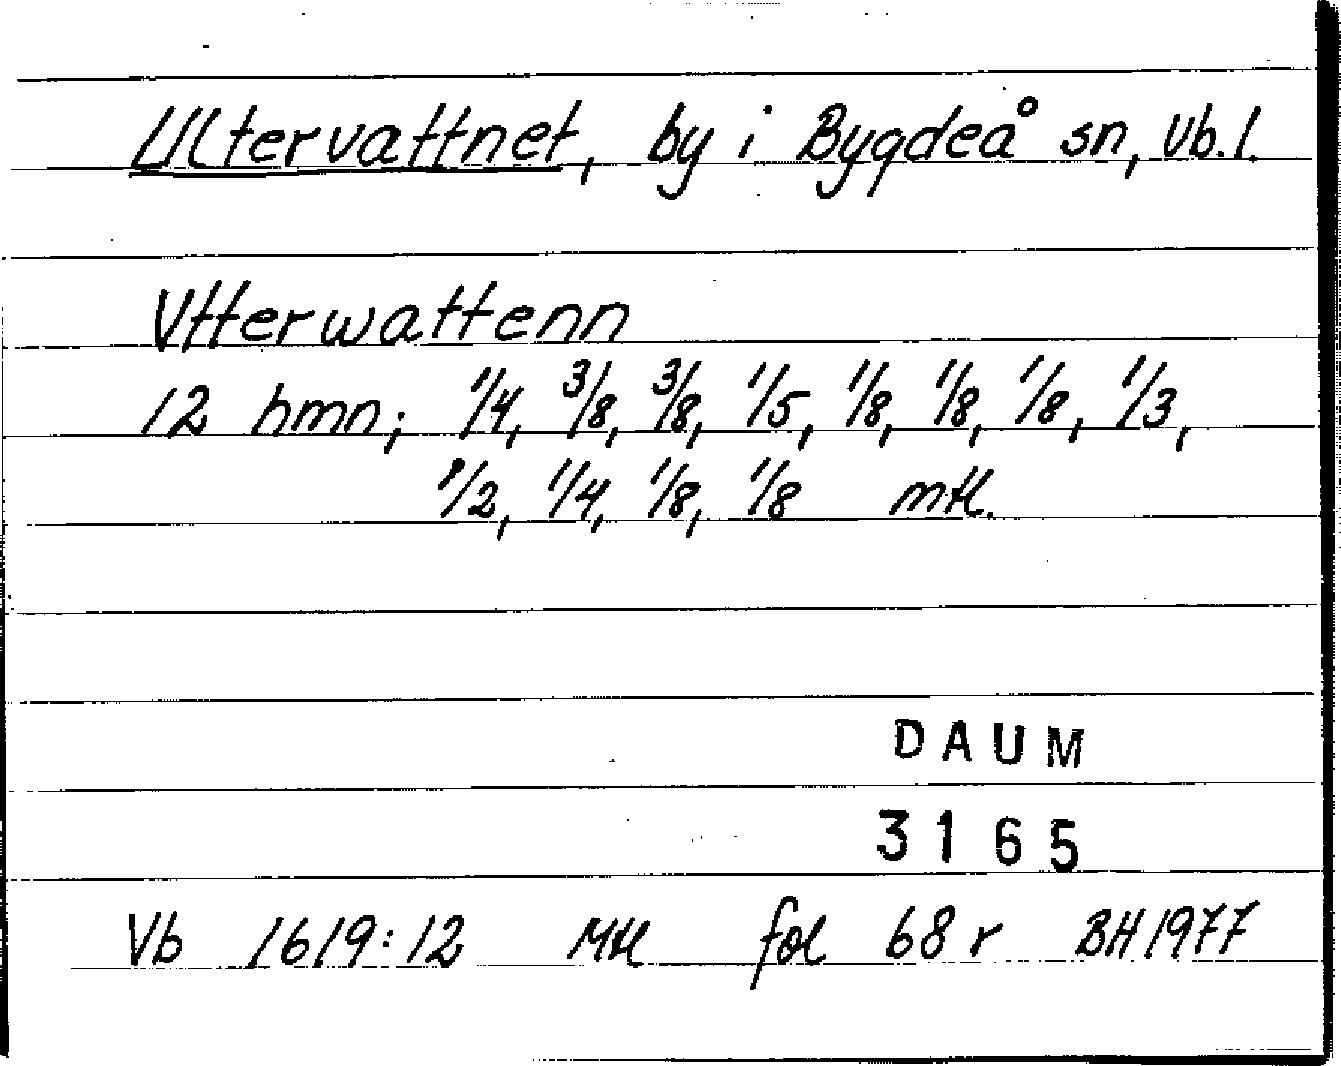 Ultervattnet, by i Bygdeå sn, Vb.l.
Vtterwattenn
12 hmn; 1/4, 3/8, 3/8, 1/5, 1/8, 1/8, 1/8, 1/3,
1/2, 1/4, 1/8, 1/8 mtl.
DAUM
3165
Vb 1619:12 Mtl fol 68 r BH 1977